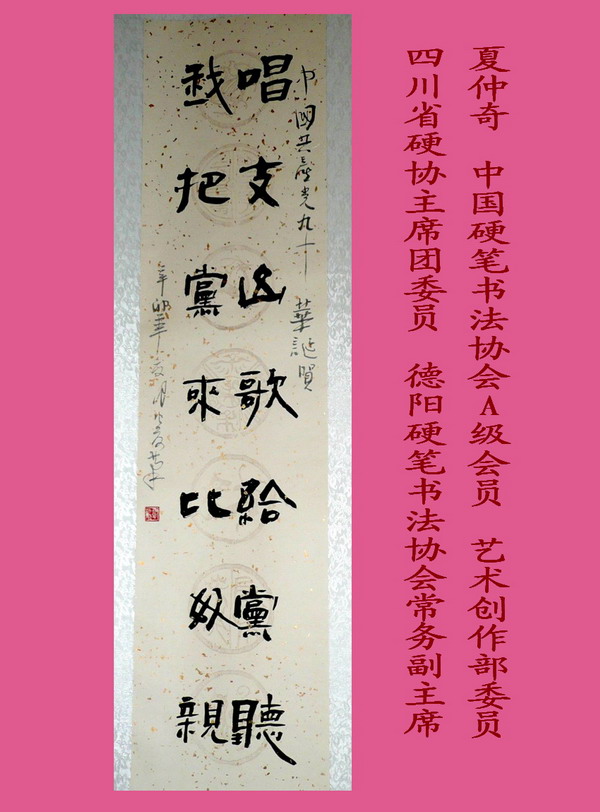 夏仲奇 中国硬笔书法协会A级会员 艺术创作部委员
四川省硬协主席团委员 德阳硬笔书法协会常务副主席
中國共產党九十華誕賀
唱支山歌給黨聽
我把黨來比奴親
辛卯年夏月